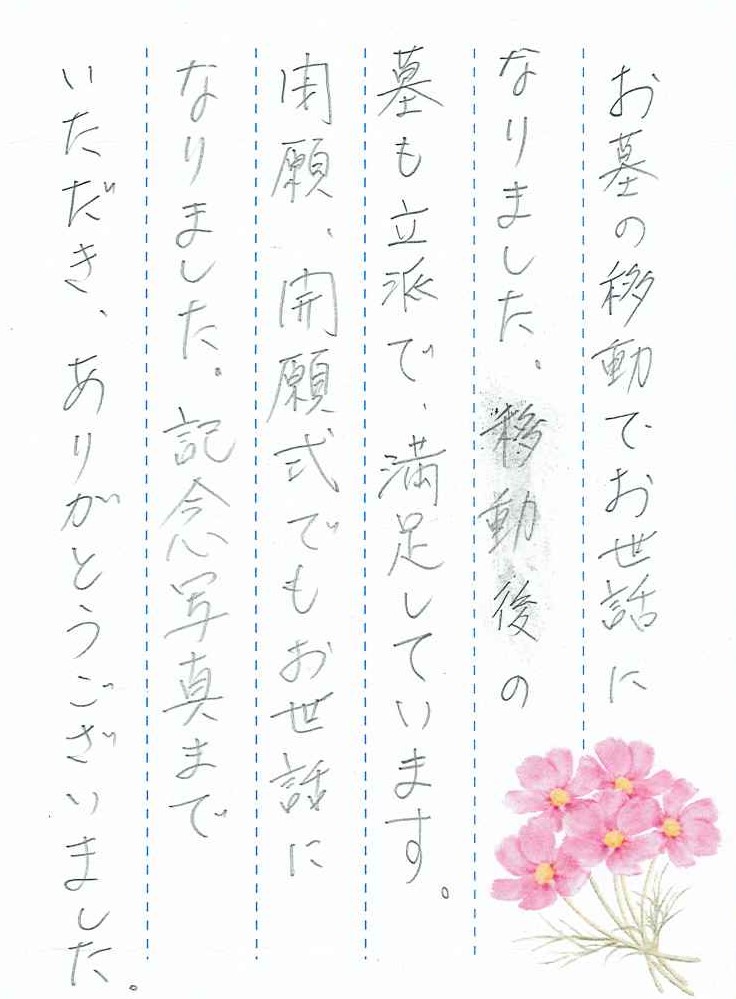 お墓の移動でお世話に
なりました。移動後の
墓も立派で、満足しています。
閉願、開願式でもお世話に
なりました。記念写真まで
いただき、ありがとうございました。